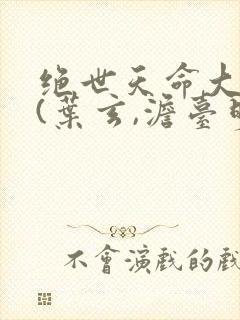 绝世天命大
(葉玄,澹臺明
不會演戲的戲